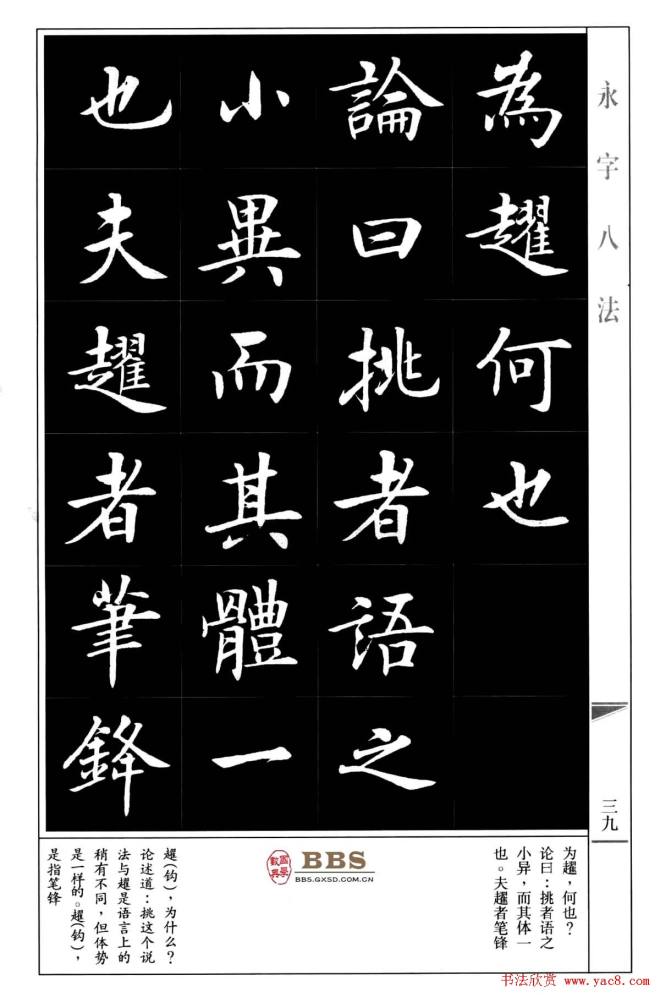 永字八法
為趯何也
論曰挑者語之
小異而其體一
也夫趯者筆鋒
三九
为趯，何也？
论曰：挑者语之
小异，而其体一
也。夫趯者笔锋
BBS
BBS.GXSD.COM.CN
趯（钩），为什么？
论述道：挑这个说
法与趯是语言上的
稍有不同，但体势
是一样的。趯（钩），
是指笔锋
书法欣赏 www.yac8.com